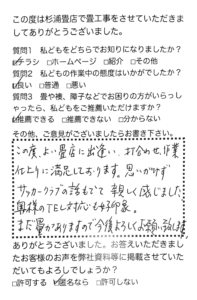 この度は杉浦畳店で畳工事をさせていただきま
してありがとうございました。
質問1 私どもをどちらでお知りになりましたか?
☑チラシ □ホームページ □紹介 □その他
質問2 私どもの作業中の態度はいかがでしたか?
☑良い □普通 □悪い
質問3 畳や襖、障子などでお困りの方がいらっし
ゃったら、私どもを推薦いただけますか?
☑推薦できる □推薦できない □分からない
その他、ご意見がございましたらお書き下さい。
この度、よい畳店に出逢い、打合せ、作業
仕上りに満足しております。思いがけず
サッカークラブの話もでて 親しく感じました
奥様のTEL対応も好印象。
まだ畳がありますので今後よろしくお願い致します
ありがとうございました。お答えいただきまし
たお客様のお声を弊社資料等に掲載させていた
だいてもよろしでしょうか?
□許可する ☑匿名なら □許可しない